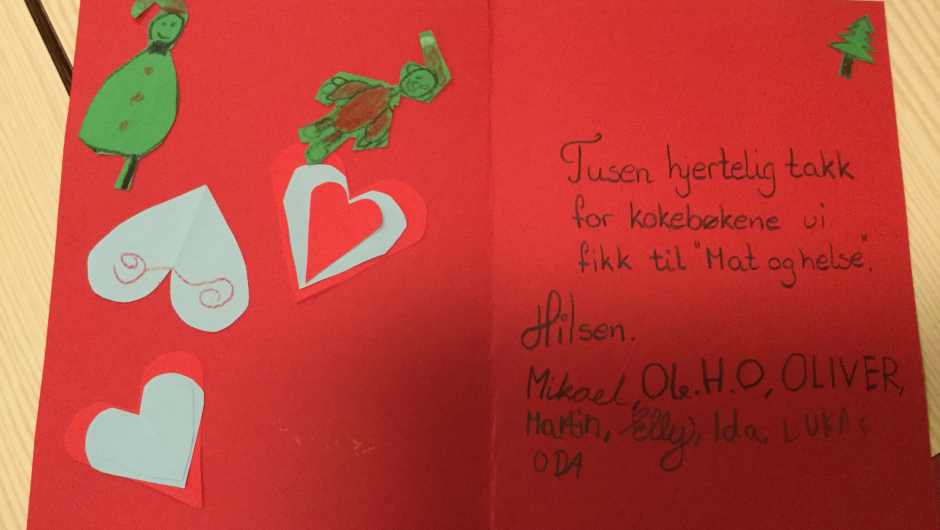 Tusen hjertelig takk
for kokebøkene vi
fikk til "Mat og helse".
Hilsen.
Mikael, Ole.H.O, OLIVER,
Martin, Elly, Ida, LUKAS
ODA